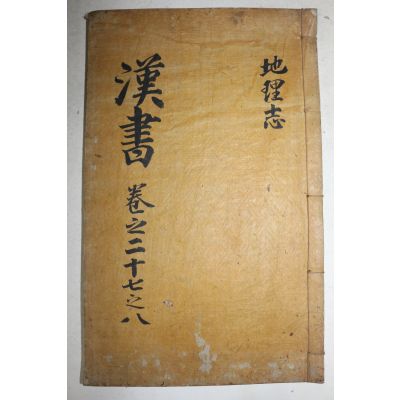 地理志
漢書
卷之二十七之八